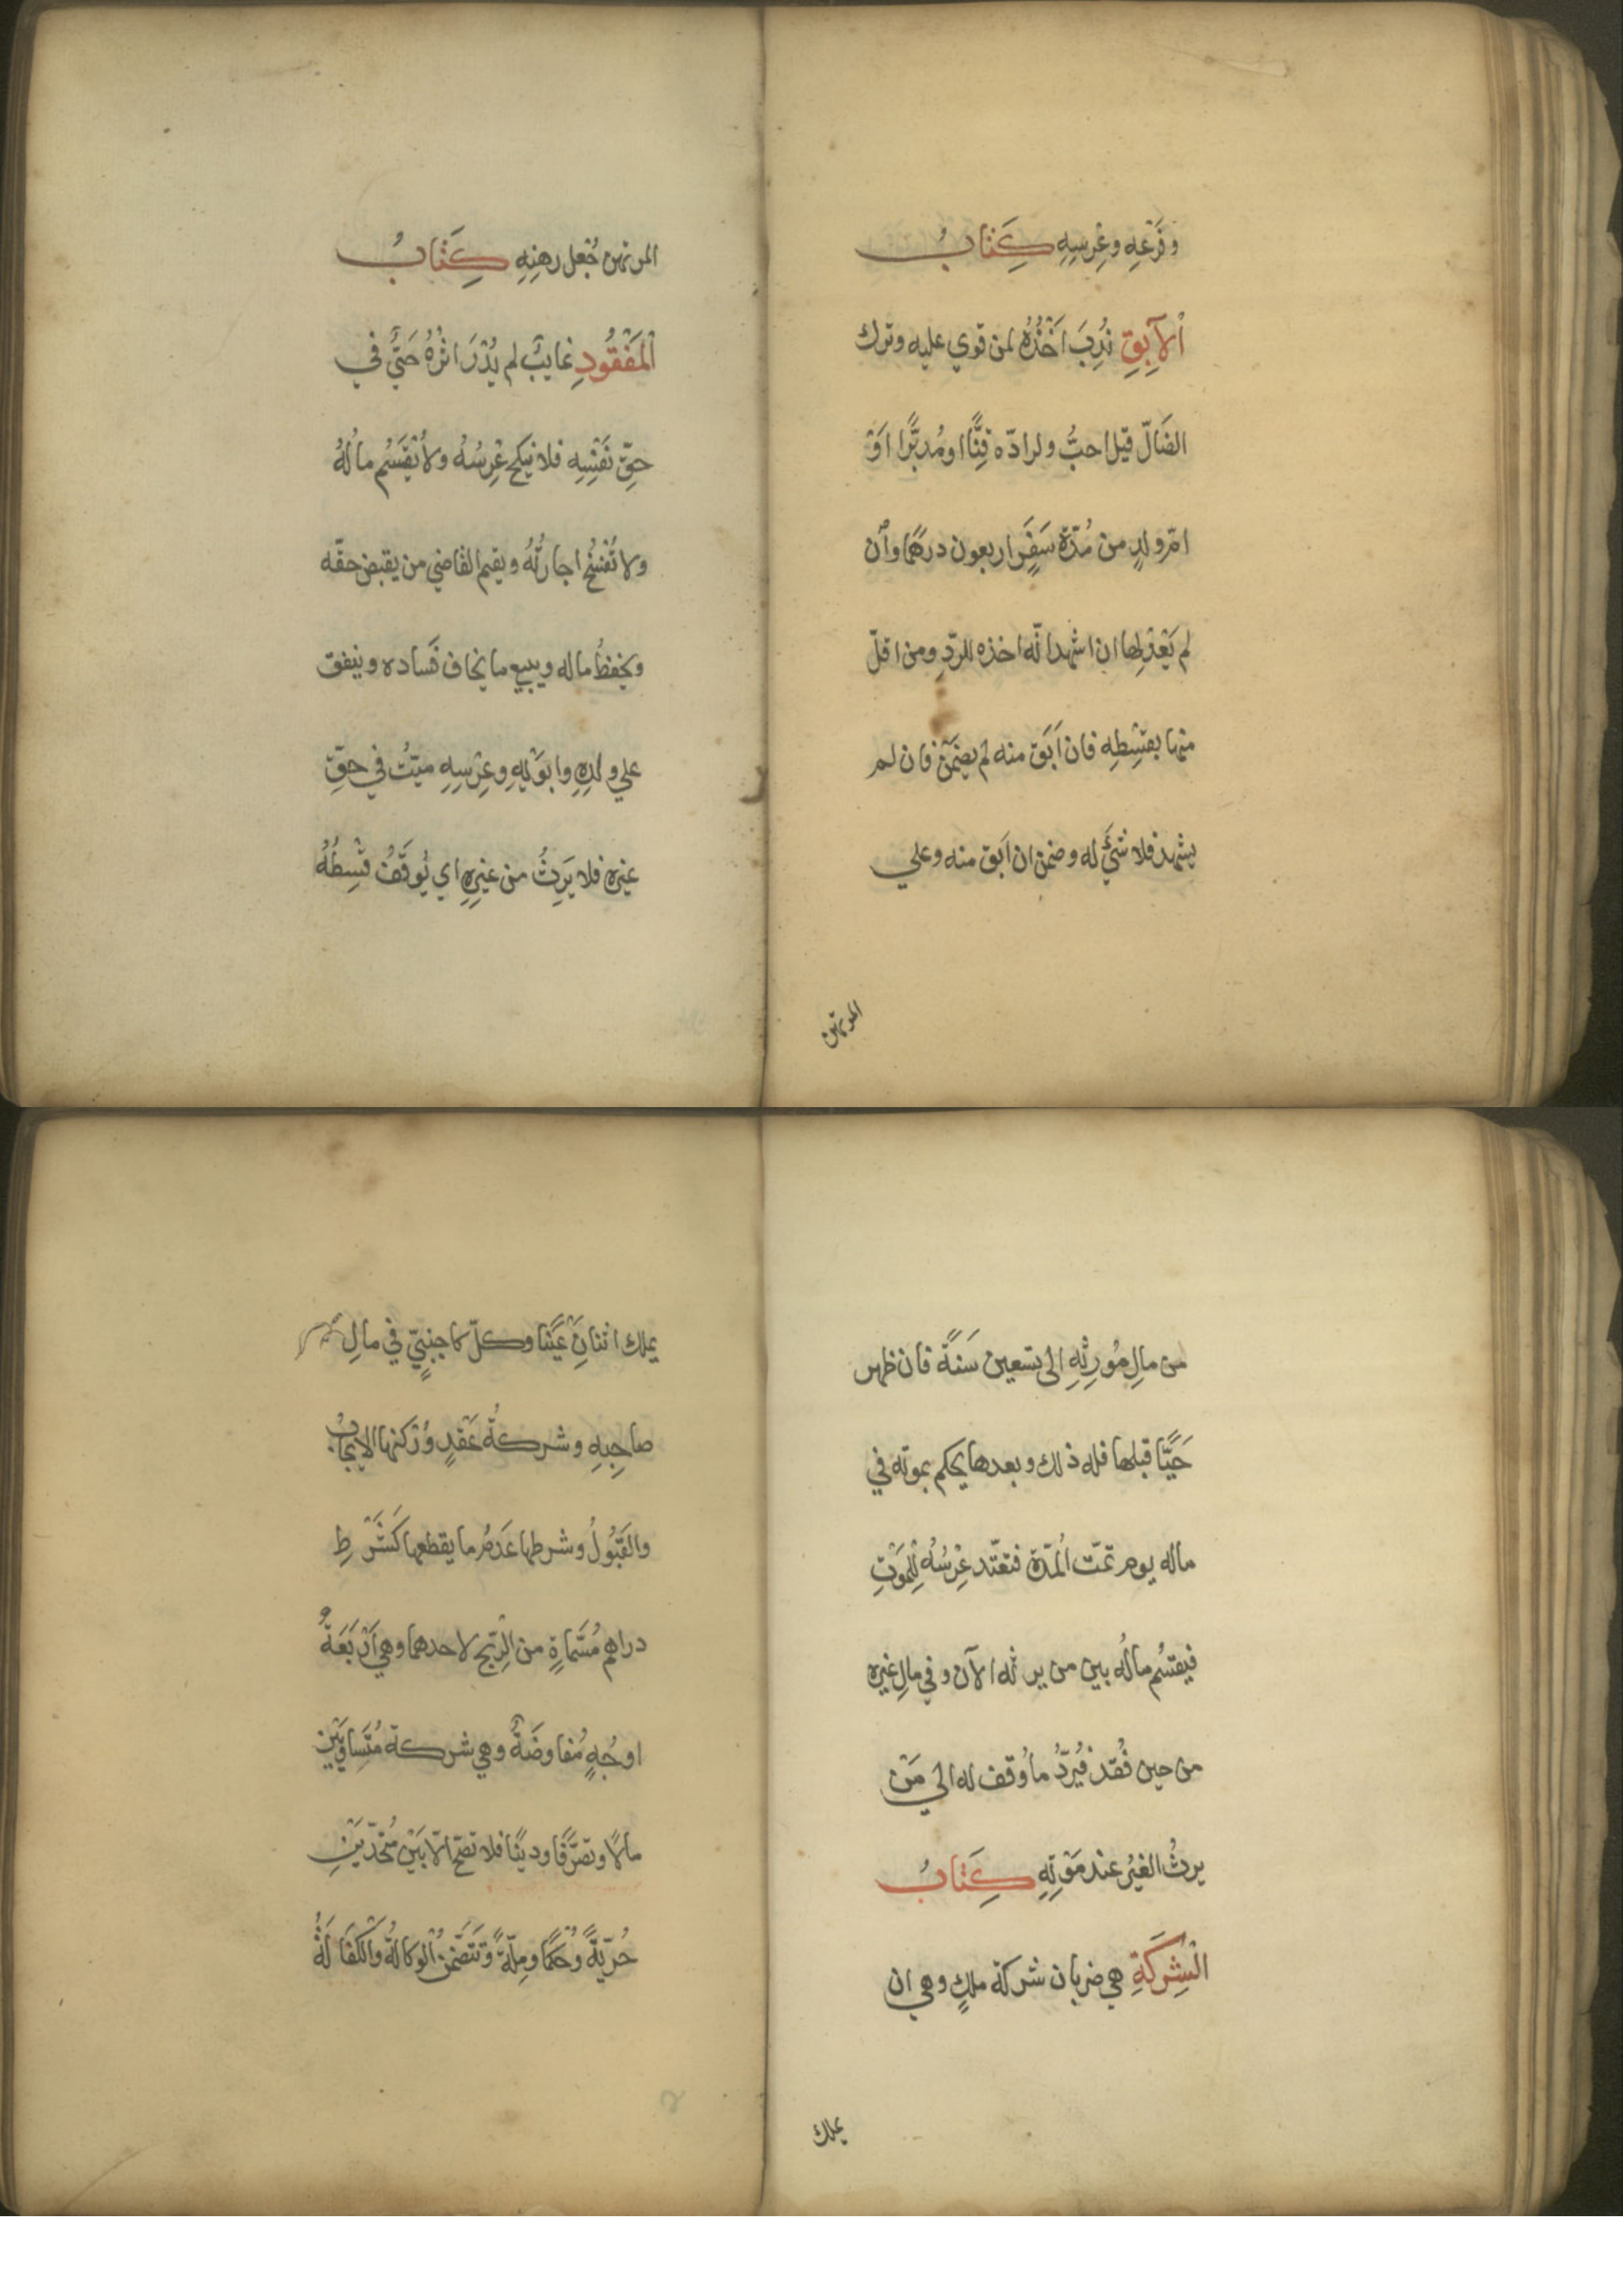 وفَرْعِهِ وعِرْسِهِ كِتَابُ
اْلآبِقِ نُدِبَ اَخْذُهُ لمن قوي عليه وترك
الضَالّ قيل احبُّ ولرادّه قِنًّا اومُدبَّرًا اَوْ
امّ ولدٍ من مُدّة سَفَرٍ اربعون درهمًا وان
لم يَعْدِلها ان اشهد انّه اخذه للرّدِ ومن اقلّ
منها بقِسْطِهِ فان اَبَق منه لم يضمَنْ فان لم
يشهد فلا شَئَ له وضمن ان اَبق منه وعلي
المرتهن
المرتهن جُعل رهنِهِ كِتَابُ
اْلمَفْقُودِ غايبٌ لم يُدْرَ اثرُهُ حَيٌّ في
حقِّ نَفْسِهِ فلا ينكح عِرْسُهُ ولا يُقْسَمُ مالُهُ
ولا تُفْسَخُ اجارتُهُ ويقيم القاضي من يقبض حقّه
ويحفظُ ماله ويبيع ما يخاف فَساده وينفق
علي ولدِهِ وابوَيْهِ وعِرْسِهِ ميّتٌ في حقِّ
غيره فلا يَرِثُ من غيرِهِ اي يُوقَفُ قِسْطُهُ
من مالِ مُورِثِهِ الى تسعين سَنَةً فان ظهر
حَيًّا قبلها فله ذلك وبعدها يحكم بموته في
ماله يوم تمّت اْلمُدّة فتعتّد عِرْسُهُ لِلْمَوْتِ
فيقسَمُ مالُه بين من يرثه الآن وفي مالِ غيره
من حين فُقد فيُرَدُّ ما وُقف له الي مَنْ
يرثُ الغيرُ عند مَوْتِهِ كِتَابُ
الْشِرْكَةِ هي ضربان شركة ملكٍ وهي ان
يملك
يملك اثنانِ عَيْنا وكلّ كاجنبيّ في مالِ
صاحِبِهِ وشركةُ عَقْدٍ وَرُكنها الايجابُ
والقَبُولُ وشرطها عَدَمُ ما يقطعها كَشَرْطِ
دراهم مُسَمّاةٍ من الرّبح لاحدهما وهي اَرْبَعَةُ
اوجُهٍ مُفاوضَةٌ وهي شركة مُتَساوِيَيْنِ
مالاً وتصرّفًا ودينًا فلا تصحّ الّا بَيْن مُتّحدَيْنِ
حُريّةً وحُكمًا ومِلّةً وتَتضَمّنُ اْلوكالةَ واْلكفالَةَ